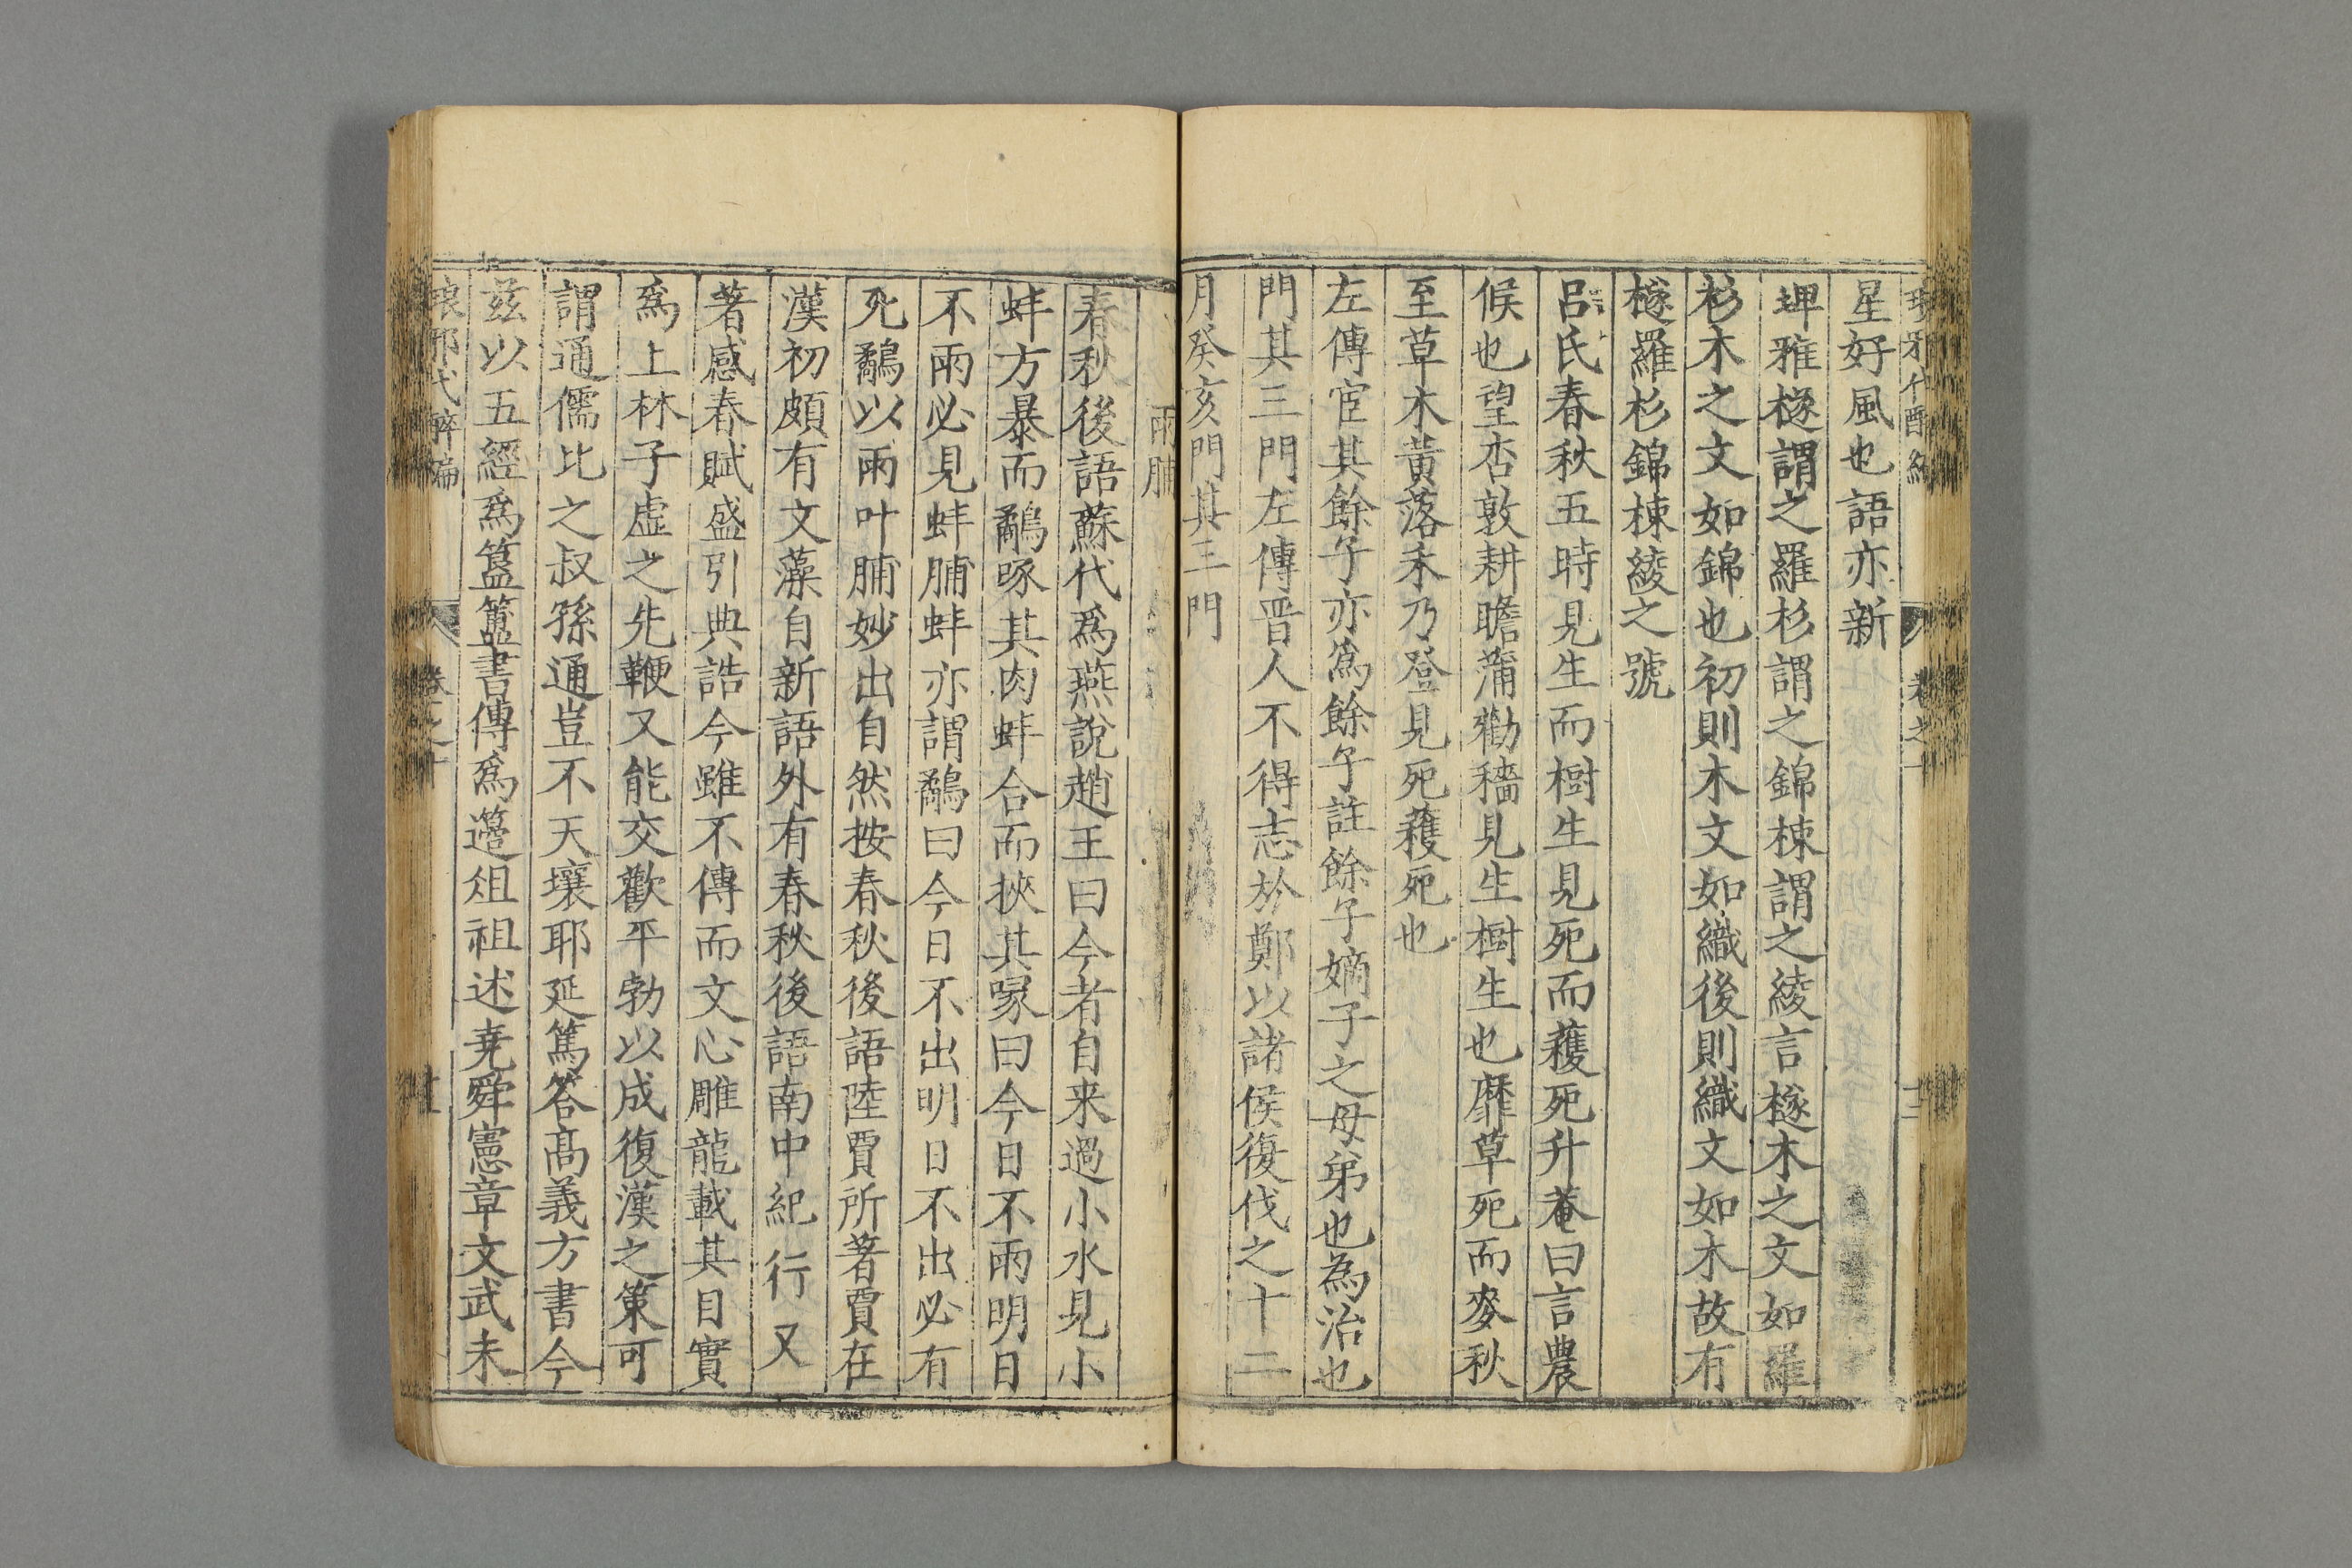 星好風也語亦新
埤雅檖謂之羅杉謂之錦楝謂之綾言檖木之文如羅
杉木之文如錦也初則木文如織後則織文如木故有
檖羅杉錦楝綾之號
呂氏春秋五時見生而樹生見死而穫死升菴曰言農
候也望杏敦耕瞻蒲勸穡見生樹生也靡草死而麥秋
至草木黃落禾乃登見死穫死也
左傳宦其餘子亦爲餘子註餘子嫡子之母弟也為治也
門其三門左傳晋人不得志於鄭以諸侯復伐之十二
月癸亥門其三門
雨脯
春秋後語蘇代爲燕說趙王曰今者自来過小水見小
蚌方暴而鷸啄其肉蚌合而挾其喙曰今日不雨明日
不雨必見蚌脯蚌亦謂鷸曰今日不出明日不出必有
死鷸以雨叶脯妙出自然按春秋後語陸賈所著賈在
漢初頗有文藻自新語外有春秋後語南中紀行又
著感春賦盛引典誥今雖不傳而文心雕龍載其目實
爲上林子虚之先鞭又能交歡平勃以成復漢之策可
謂通儒比之叔孫通豈不天壤耶延篤答高義方書今
玆以五經爲簋簠書傳爲籩俎祖述堯舜憲章文武未
琅邪代醉編
卷之十